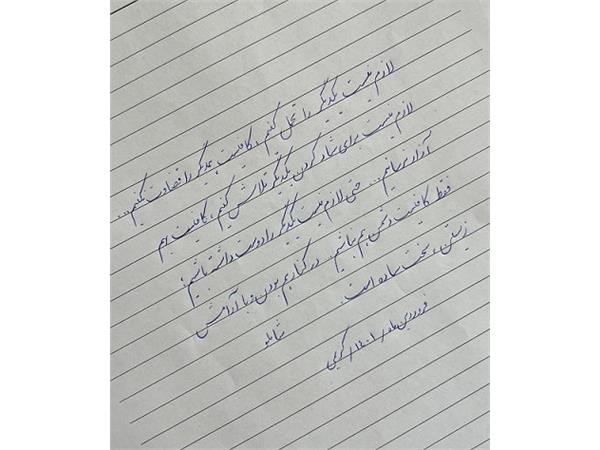 لازم نیست یکدیگر را تحمل کنیم، کافیست همدیگر را قضاوت نکنیم...
لازم نیست برای شاد کردن یکدیگر تلاش کنیم، کافیست بهم
آزار نرسانیم... حتی لازم نیست یکدیگر را دوست داشته باشیم؛
فقط کافیست دشمن هم نباشیم. در کنار هم بودن و با آرامش
زیستن، سخت ساده است.
شاملو
فروردین ماه ۱۴۰۱